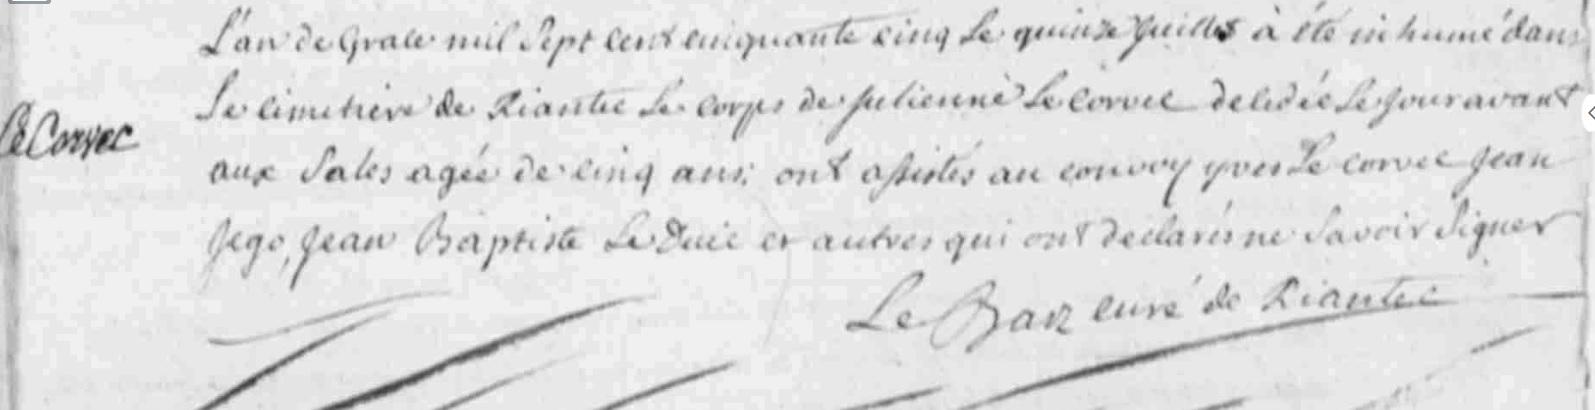 L'an de Grace mil Sept cent cinquante cinq Le quinze Juillet à été inhumé dans
Le cimetiere de Riantec Le corps de Julienne Le Corvec decedée Le Jour avant
Le Corvec
aux Sales agée de cinq ans; ont assistés au convoy yves Le corvec Jean
Jego, Jean Baptiste Le Duic et autres qui ont declarés ne Savoir Signer
Le Barz curé de Riantec